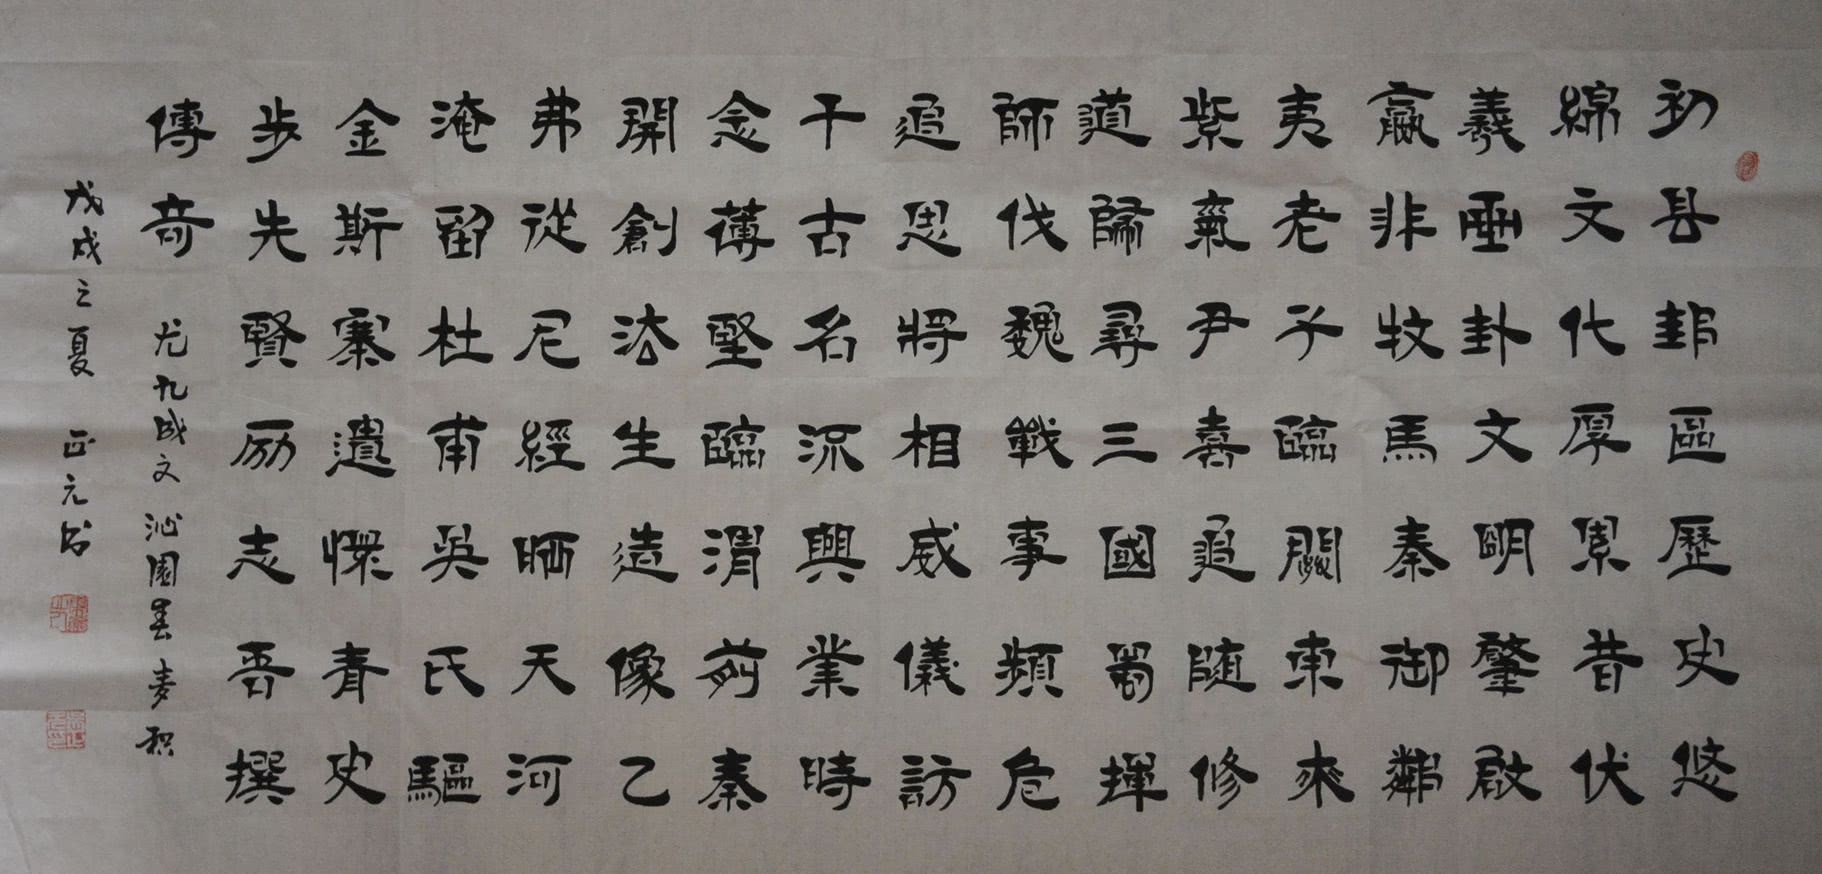 初县邽區歷史悠
綿文代厚累昔伏
羲画卦文明肇啟
嬴非牧馬秦御鄰
夷老子臨關東來
紫氣尹喜追随修
道歸尋三國蜀揮
師伐魏戰事頻危
追思將相威儀訪
千古名流興業時
念薄堅臨渭前秦
開創法生造像乙
弗從尼經晒天河
淹留杜甫吳氏驅
金斯寨遺憾青史
步先賢励志吾撰
傳奇 尤九成文沁園春麦积
戊戌之夏 正元书